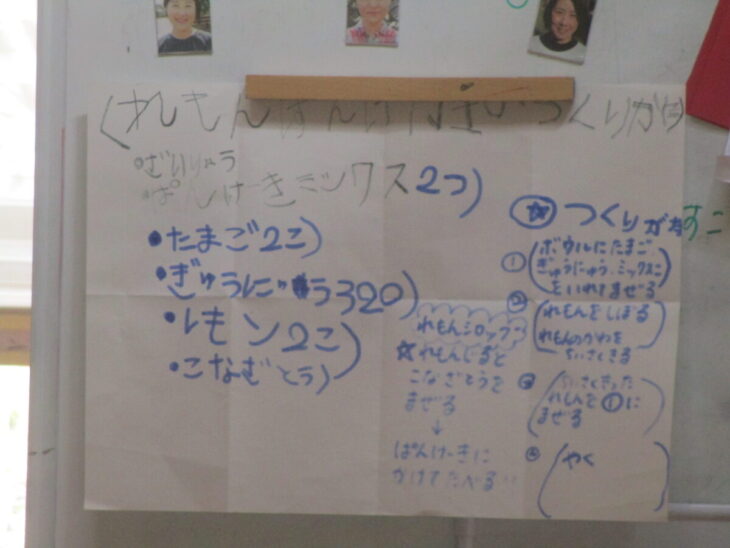 れもんぱんけーきのつくりかた
・ざいりゅう
・ぱんけーきミックス2つ
・たまご2こ
・ぎゅうにゅう320
・レモン2こ
・こなざとう
☆つくりかた
①ボウルにたまご
ぎゅうにゅう、ミックスこ
をいれてまぜる
②れもんをしぼる
れもんのかわを
ちいさくきる
③ちいさくきった
れもんを①に
まぜる
④やく
れもんシロップ
☆れもんじると
こなざとうを
まぜる
↓
ぱんけーきに
かけてたべる